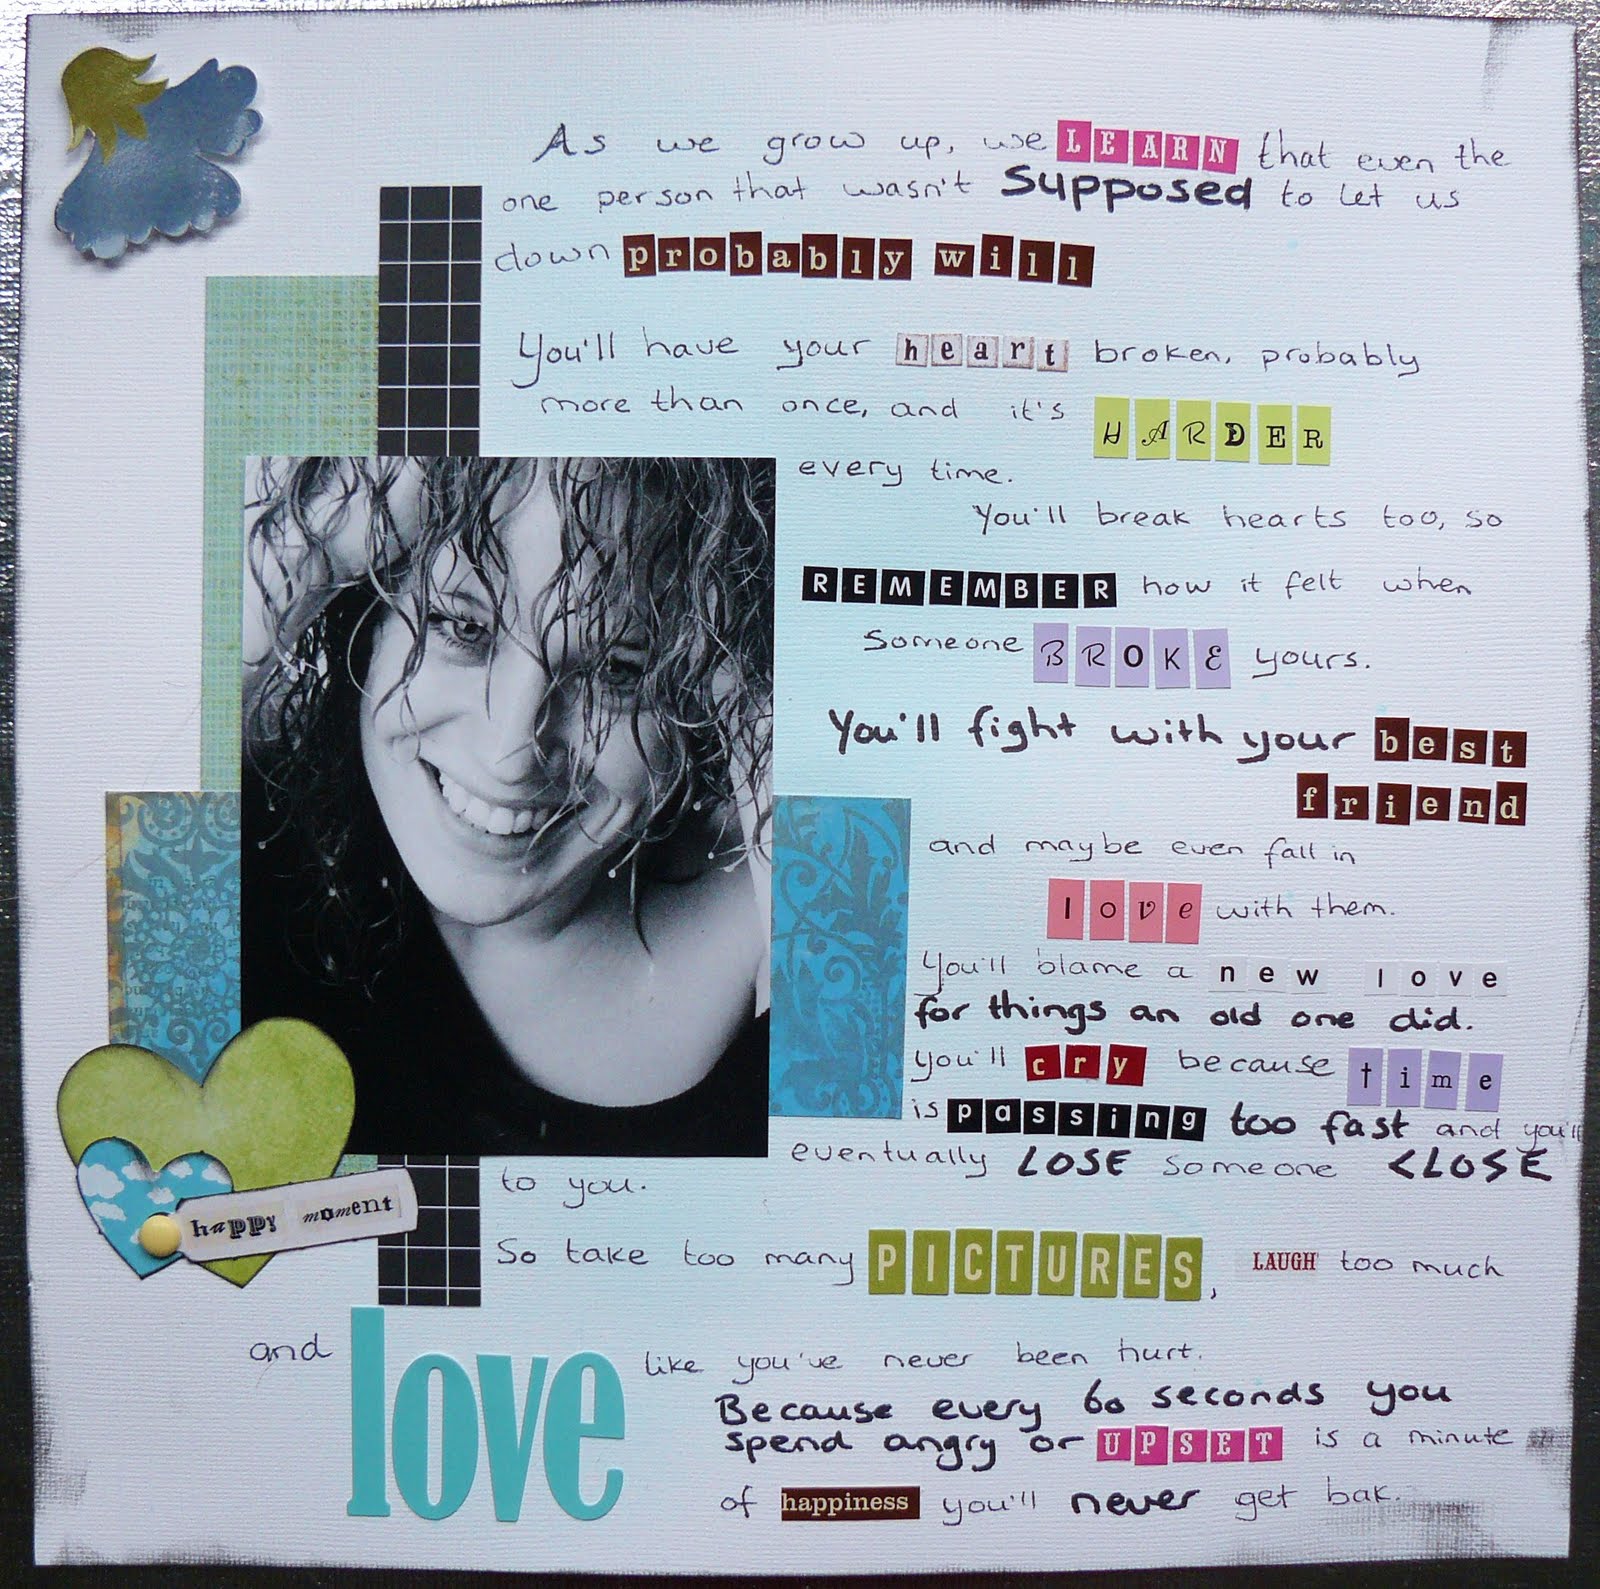 As we grow up, we LEARN that even the
one person that wasn't Supposed to let us
down probably will
You'll have your heart broken, probably
more than once, and it's HARDER
every time.
You'll break hearts too, so
REMEMBER how it felt when
Someone BROKE yours.
You'll fight with your best
friend
and maybe even fall in
love with them.
You'll blame a new love
for things an old one did.
you'll cry because time
is passing too fast and you'll
eventually LOSE someone CLOSE
to you.
happy moment
So take too many PICTURES, LAUGH too much
and love like you've never been hurt.
Because every 60 seconds you
spend angry or UPSET is a minute
of happiness you'll never get bak.